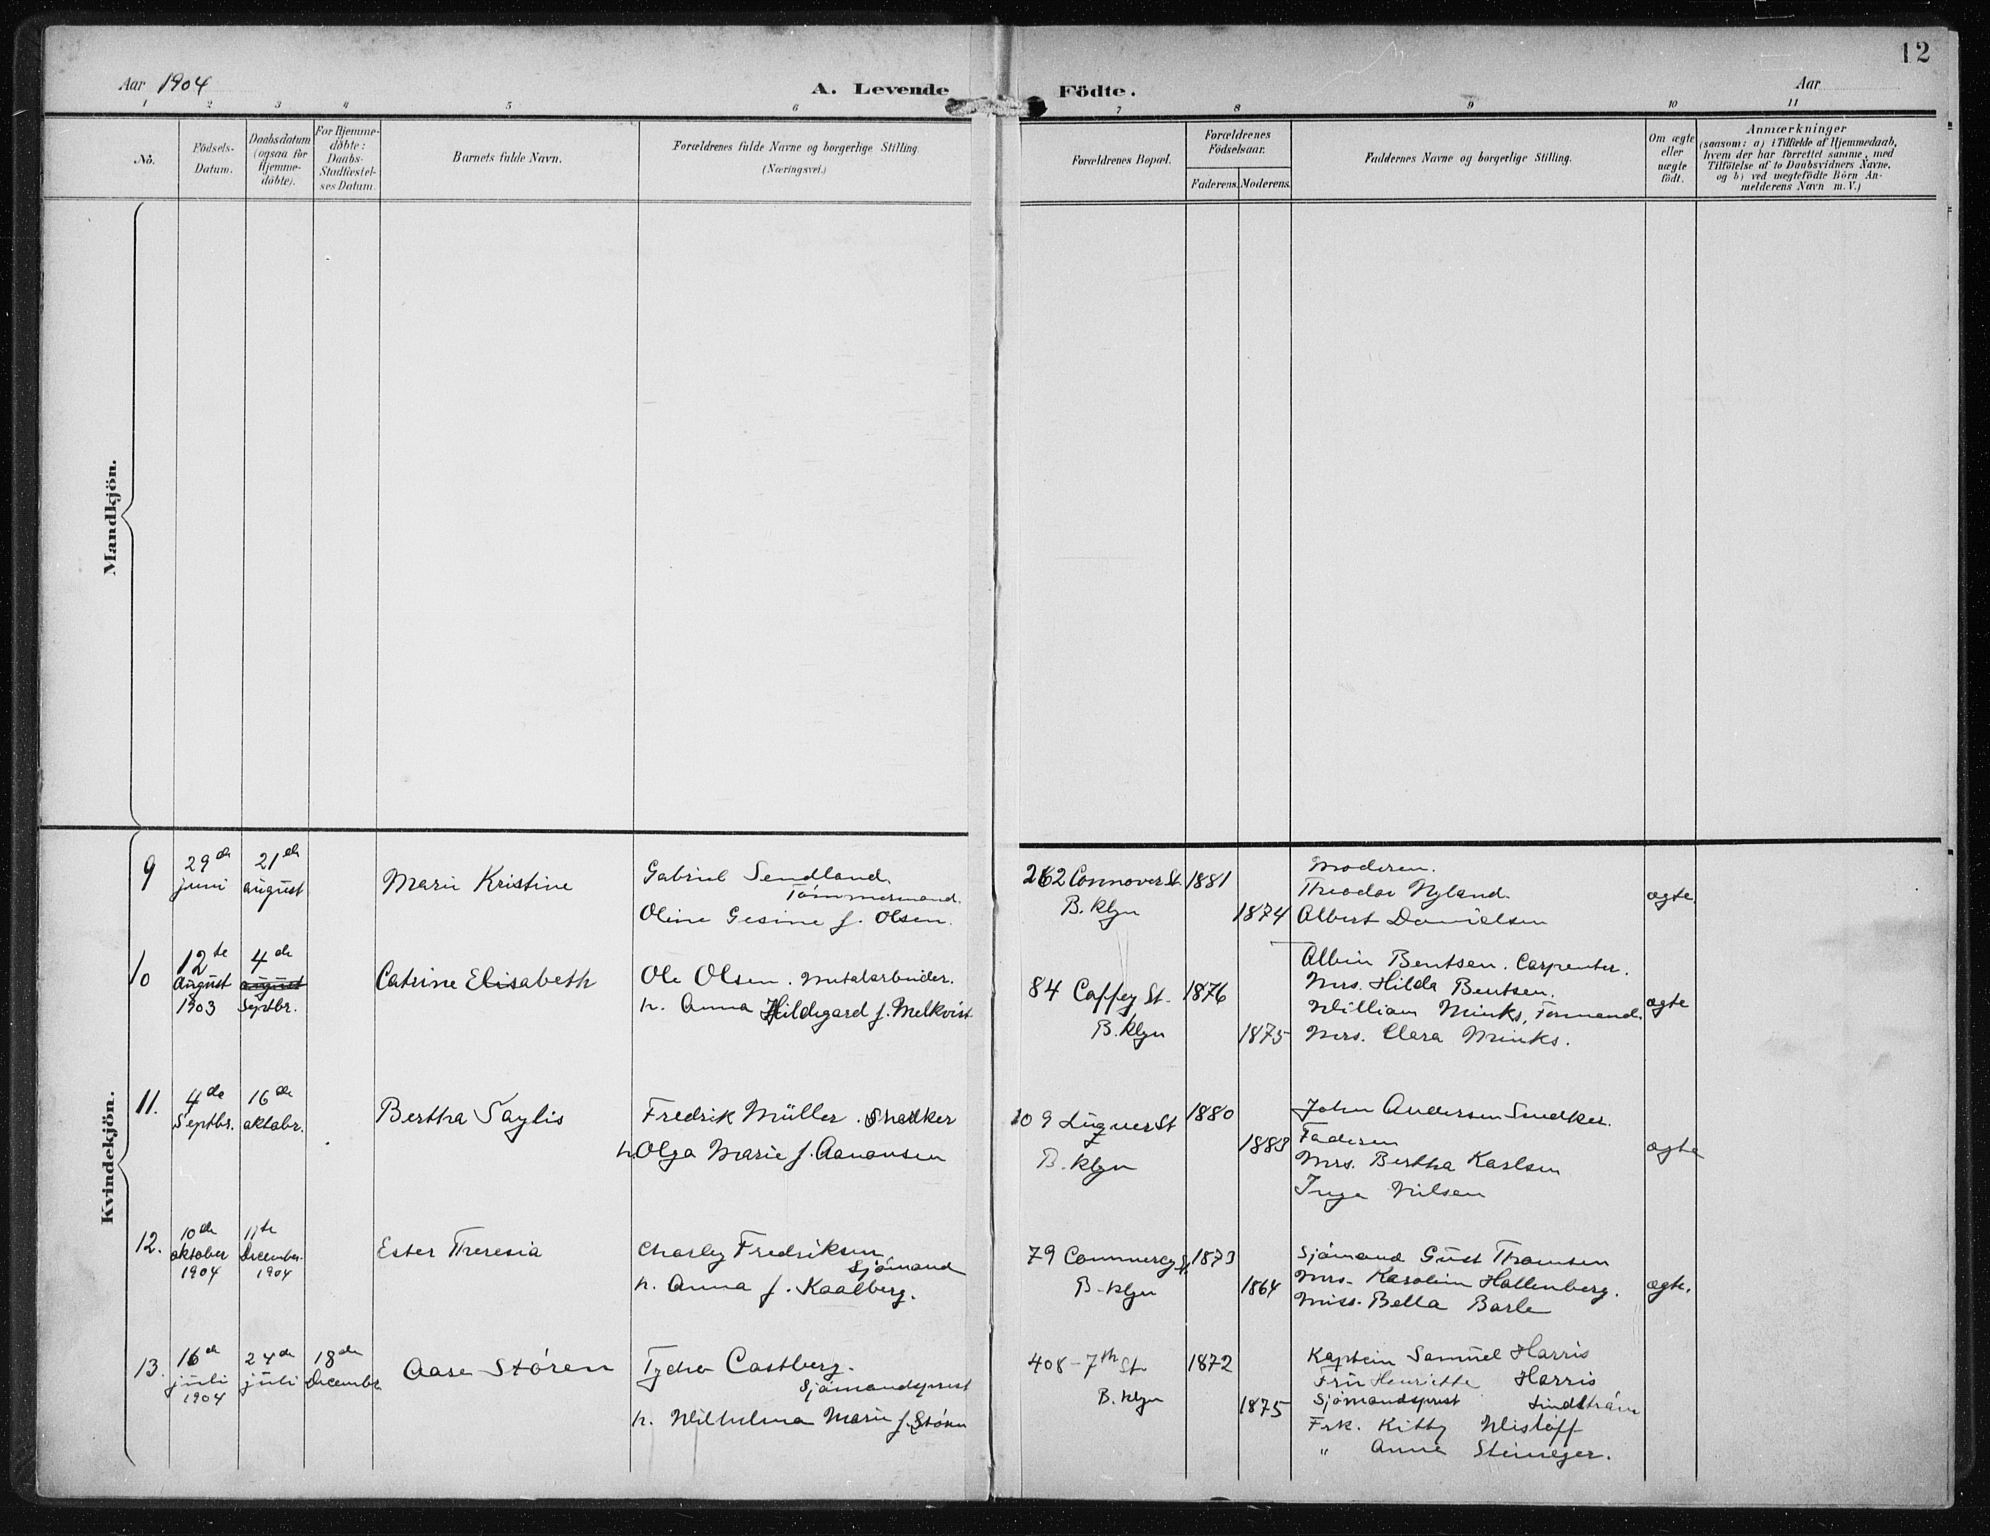 12
Aar 1904
A. Levende Födte.
Aar
1 2 3 4 5 6 7 8 9 10 11
No.
Födsels-
Datum.
Daabsdatum
(ogsaa for
Hjemme-
döbte).
For Hjemme-
döbte:
Daabs-
Stadfæstel-
ses Datum.
Barnets fulde Navn.
Forældrenes fulde Navne og borgerlige Stilling.
(Næringsvei.)
Forældrenes Bopæl.
Forældrenes
Födselsaar.
Faderens. Moderens.
Faddernes Navne og borgerlige Stilling.
Om ægte
eller
uægte
födt.
Anmærkninger
(saasom: a) i Tilfælde af Hjemmedaab,
hvem der har forrettet samme, med
Tilföielse af to Daabsvidners Navne,
og b) ved uægtefödte Börn An-
melderens Navn m. V.)
Mandkjön.
Kvindekjön.
9
29de
juni
21de
august
Marie Kristine
Gabriel Sendland
Tömmermand.
Oline Gesine f. Olsen.
262 Connover St.
B.klyn
1881
1874
Moderen.
Theodor Nyland.
Albert Danielsen
ægte
10
12te
August
1903
4de
august
Septbr.
Catrine Elisabeth
Ole Olsen. Metalarbeider.
h. Anna Hildegard f. Melkvist
84 Coffey St.
B.klyn
1876
1875
Albin Bentsen. Carpenter.
Mrs. Hilda Bentsen.
William Minks, Formand.
Mrs. Clara Minks.
ægte
11.
4de
Septbr.
16de
oktobr.
Bertha Saylis
Fredrik Müller. Snedker
h. Olga Marie f. Aanonsen
109 Luquer St
B.klyn
1880
1883
John Andersen Snedker.
Faderen
Mrs. Bertha Karlsen
Inga Nilsen
ægte
12.
10de
oktober
1904
11te
December
1904
Ester Theresia
Charley Fredriksen
Sjömand
h. Anna f. Kaalberg.
79 Commercy St.
B.klyn
1873
1864
Sjömand Gust Thomsen
Mrs. Karolin Hallenberg.
Miss. Bella Barle
ægte.
13.
16de
juli
1904
24de
juli
18de
December
Aase Stören
Tycho Castberg.
Sjömandsprest
h. Wilhelma Marie f. Stören
408 - 7th St
B.klyn
1872
1875
Kaptein Samuel Harris
Frü Henriette Harris
Sjömandsprest Lindström
Frk. Kitty Wisløff
" Anne Steineger.